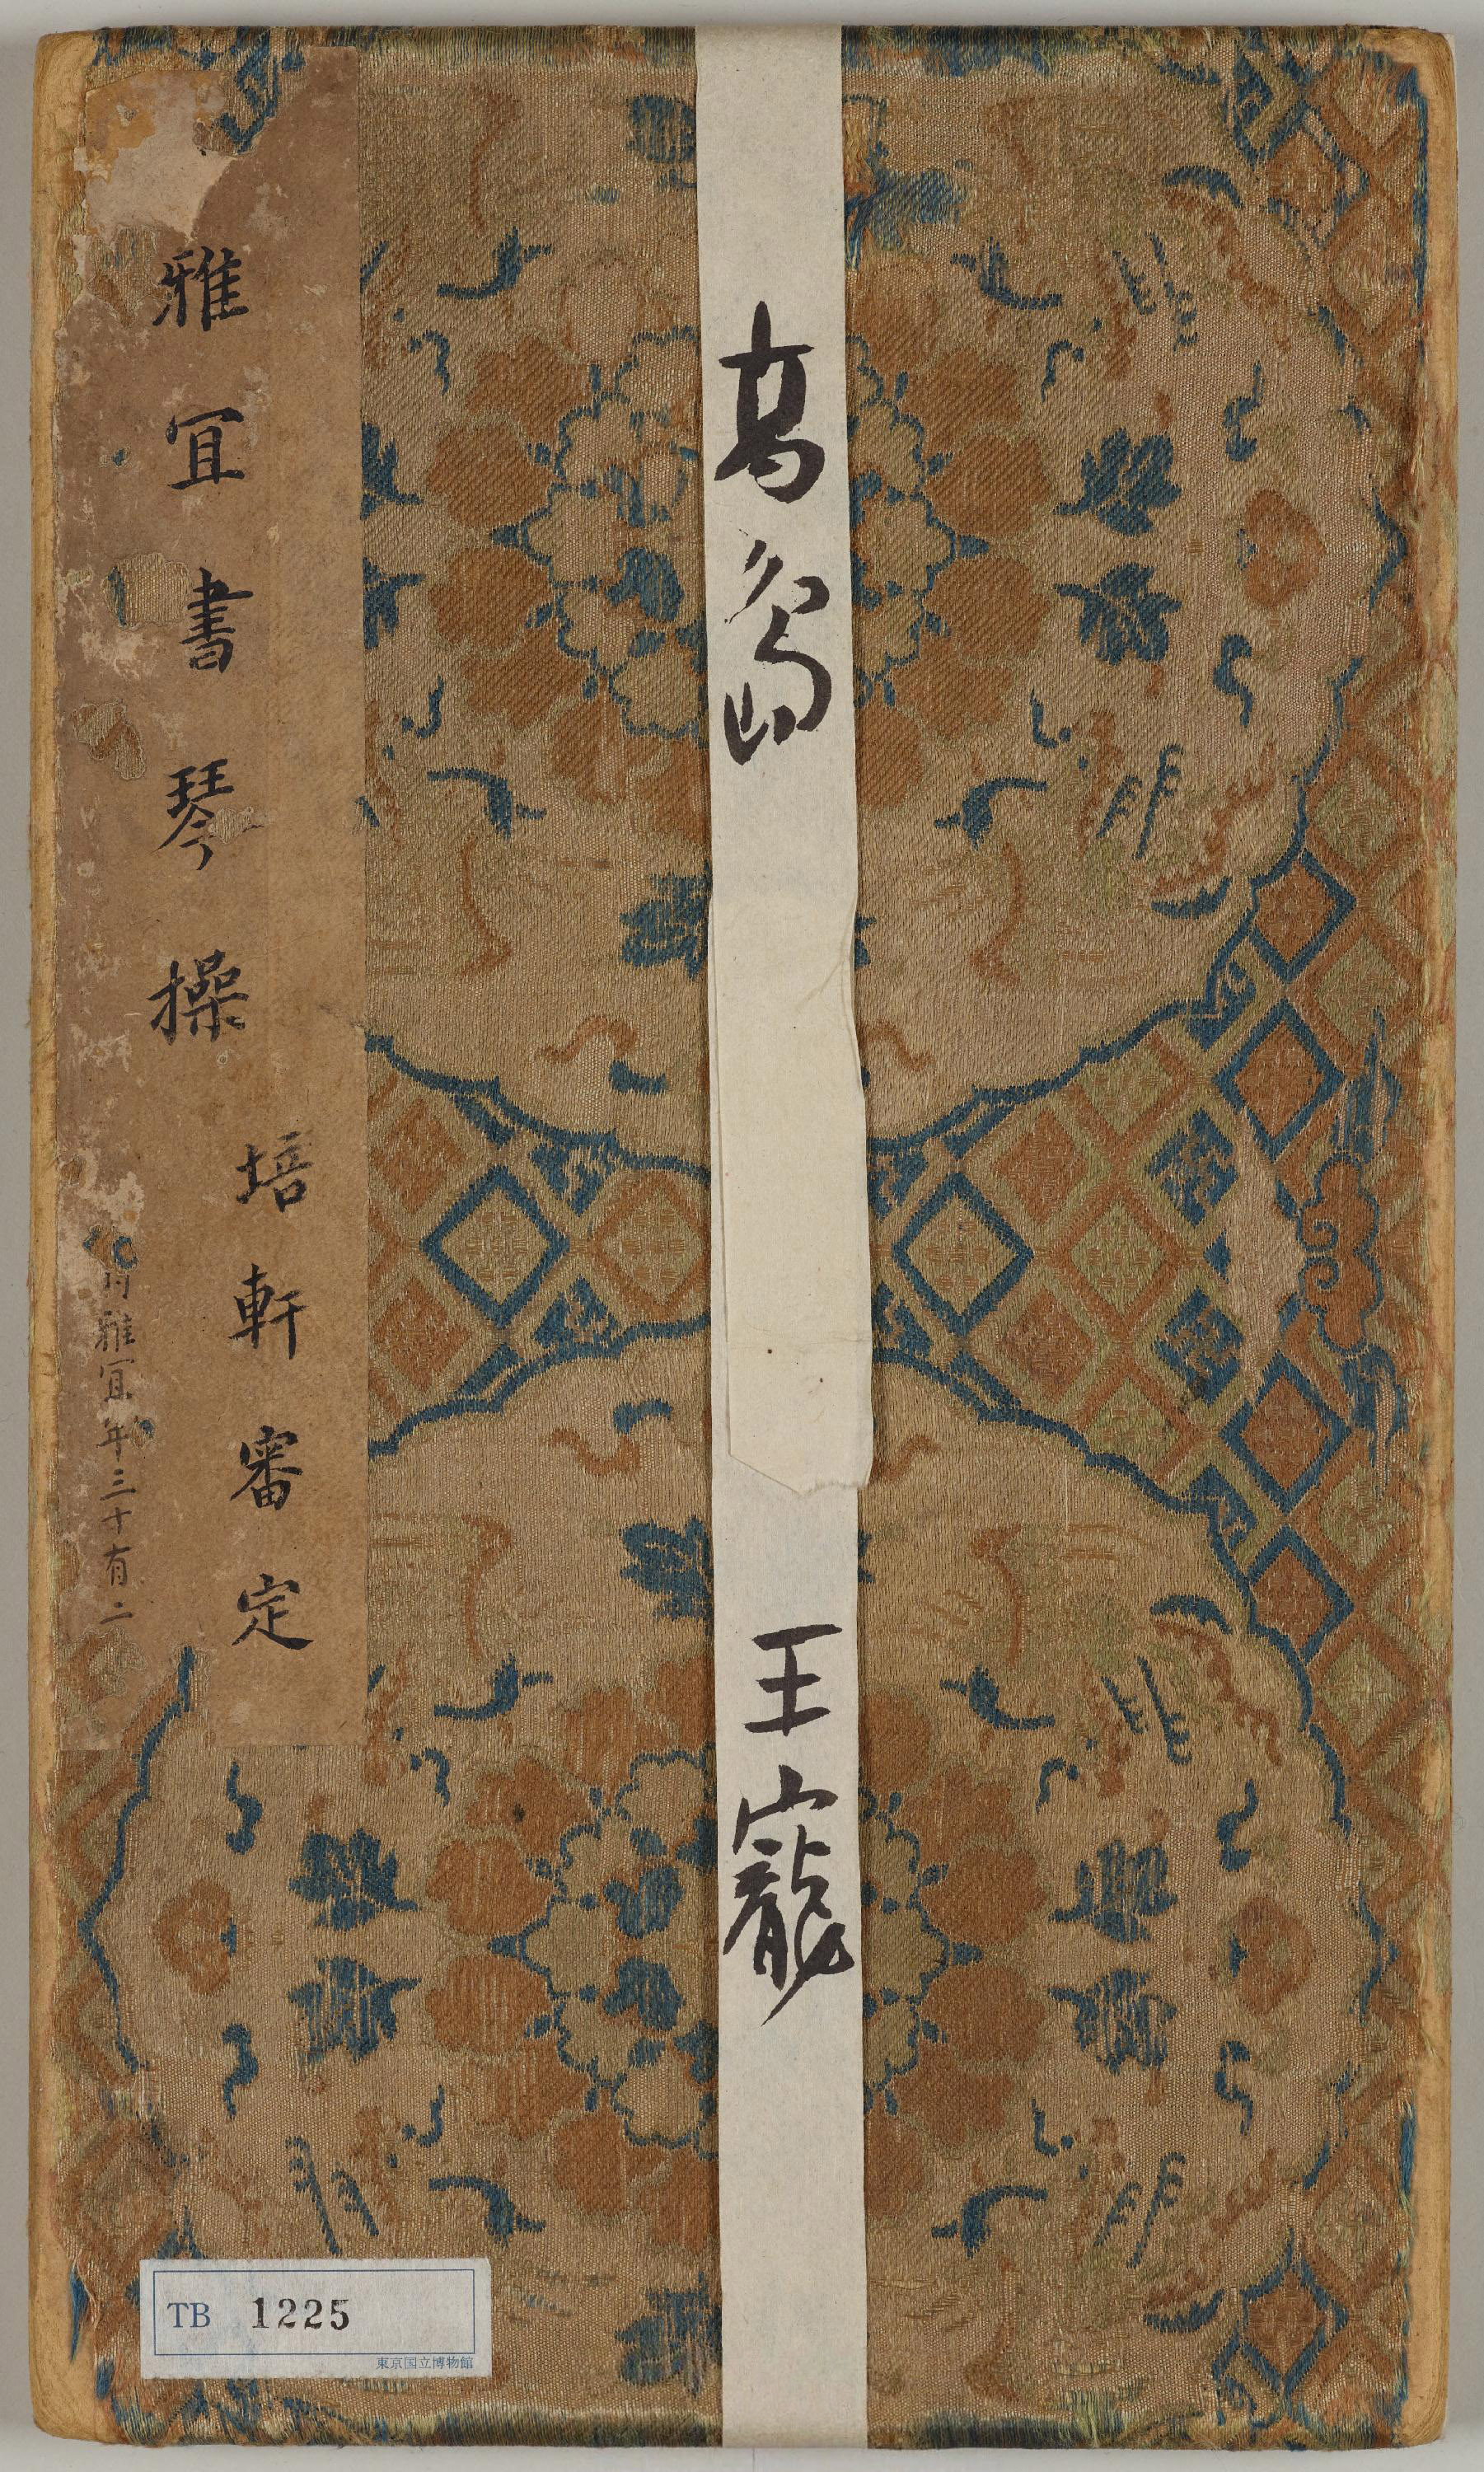 高島
王寵
雅宜書琴操
培軒審定
雅宜年三十有二
TB 1225
東京国立博物館